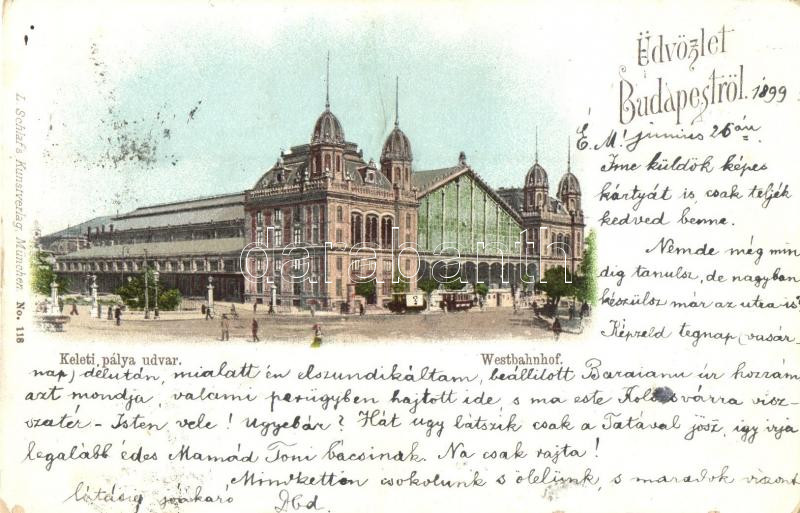 Üdvözlet
Budapestről.
1899
É. M! junius 26 án
Ime küldök képes
kártyát is, csak teljék
kedved benne.
Nemde még min
dig tanulsz, de nagyban
készülsz már az utra is?
Képzeld tegnap (vasár-
nap) délután, mialatt én elszundikáltam, beállitott Baraianu úr hozzám
azt mondja valami perügyben hajtott ide s ma este Kolozsvárra visz-
szatér - Isten vele! Ugyebár? Hát ugy látszik csak a Tatával jösz, igy irja
legalább édes Mamád Toni bácsinak. Na csak rajta!
Mindketten csokolunk s ölelünk, s maradok viszont
látásig jóakaró
Keleti pálya udvar.
Westbahnhof.
L. Schlaf's Kunstverlag, München. No. 118
darabanth